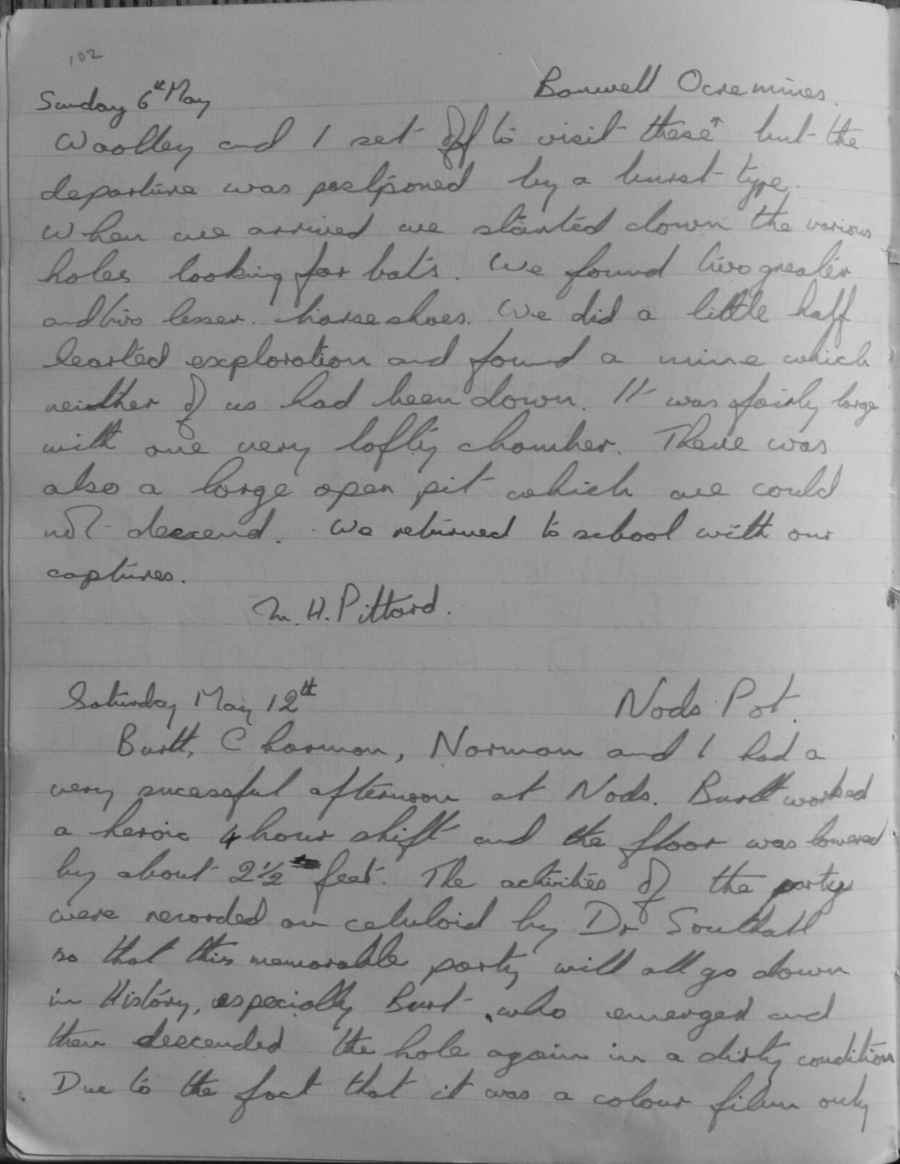 102
Sunday 6th May Banwell Ocre mines.
Woolley and I set off to visit these but the
departure was postponed by a burst tyre.
When we arrived we started down the various
holes looking for bats. We found two greater
and two lesser horse shoes. We did a little half
hearted exploration and found a mine which
neither of us had been down. It was fairly large
with one very lofty chamber. There was
also a large open pit which we could
not descend. We returned to school with our
captures.
M. H. Pittard.
Saturday May 12th Nods Pot.
Burtt, Charmon, Norman and I had a
very sucessful afternoon at Nods. Burtt worked
a heroic 4 hour shift and the floor was lowered
by about 2 1/2 feet. The activities of the party
were recorded on celuloid by Dr Southall
so that this memorable party will all go down
in History, especially Burt who emerged and
then descended the hole again in a dirty condition
Due to the fact that it was a colour film only